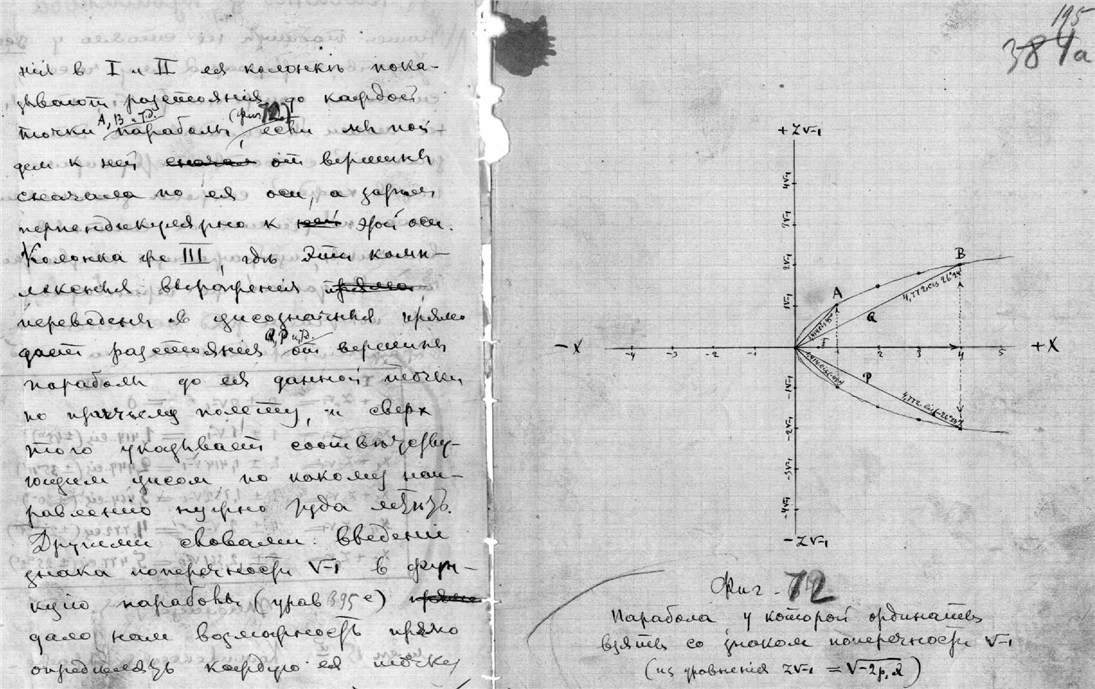 нiя в I и II ея колонкѣ пока-
зывают разстоянiя до каждой
А, В и т.д. (фиг 72)
точки параболы, если мы пой-
дем к ней сначала от вершины
сначала по ея оси, а затѣм
перпендикулярно к ней этой оси.
Колонка же III, гдѣ эти комп-
лексныя выраженiя прямо
переведены в цисозначныя прямо
Q, P и т.д.
дает разстоянiя от вершины
параболы до ея данной точки
по прямому полету, и сверх
того указывает соотвѣтству-
ющим цисом, по какому нап-
равленiю нужно туда летѣть.
Другими словами: введенiе
знака поперечности √-1 в фун-
кцiю параболы (урав 395 е) прямо
дало нам возможность прямо
опредѣлять каждую ея точку
195
384а
+Z√-1
4√-1
3√-1
2√-1
1√-1
B
A
4,472 cis 26°34'
Q
-X
-4
-3
-2
-1
1
2
3
4
5
+X
P
-1√-1
-2√-1
-3√-1
-4√-1
-Z√-1
Фиг. 72
Парабола у которой ординаты
взяты со знаком поперечности √-1
(из уравненiя Z√-1 =